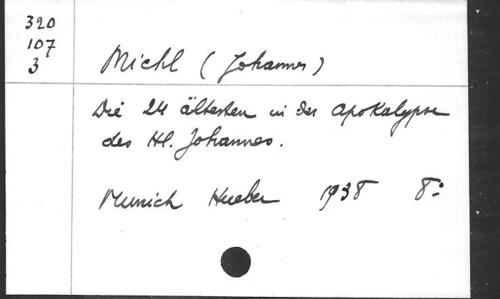 320
107
3
Michl (Johannes)
Die 24 ältesten in der Apokalypse
des Hl. Johannes.
Munich Hueber 1938 8: